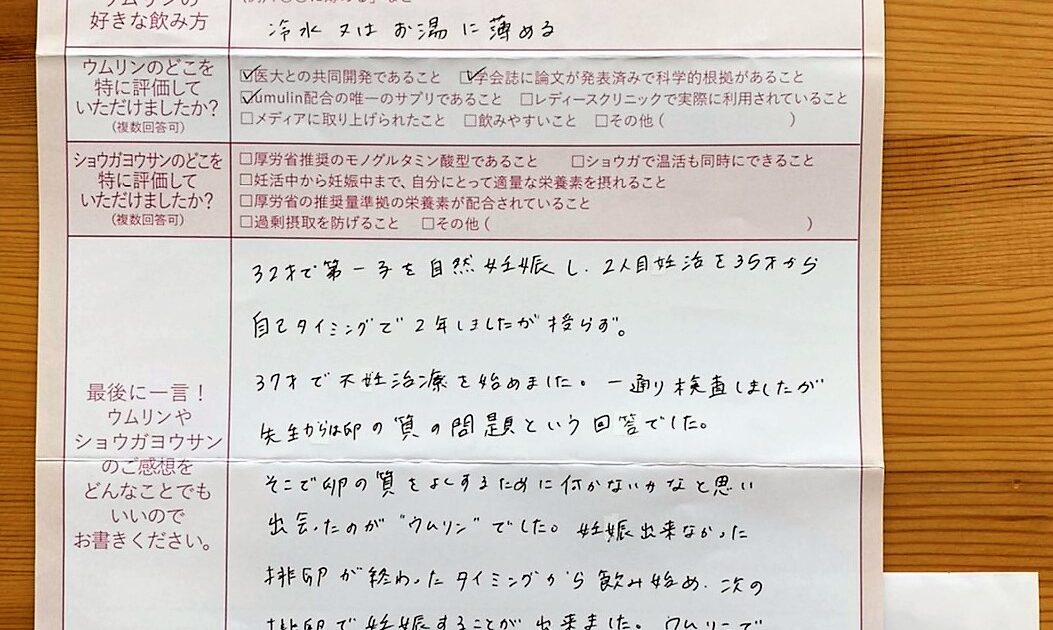 ウムリンの
好きな飲み方
冷水 又は お湯 に 薄める
ウムリンのどこを
特に評価して
いただけましたか?
(複数回答可)
☑医大との共同開発であること ☑学会誌に論文が発表済みで科学的根拠があること
☑umulin配合の唯一のサプリであること □レディースクリニックで実際に利用されていること
□メディアに取り上げられたこと □飲みやすいこと □その他 ( )
ショウガヨウサンのどこを
特に評価して
いただけましたか?
(複数回答可)
□厚労省推奨のモノグルタミン酸型であること □ショウガで温活も同時にできること
□妊活中から妊娠中まで、自分にとって適量な栄養素を摂れること
□厚労省の推奨量準拠の栄養素が配合されていること
□過剰摂取を防げること □その他 ( )
最後に一言!
ウムリンや
ショウガヨウサン
のご感想を
どんなことでも
いいので
お書きください。
32才で第一子を自然妊娠し、2人目妊活を35才から
自己タイミングで2年しましたが授らず。
37才で不妊治療を始めました。一通り検査しましたが
先生からは卵の質の問題という回答でした。
そこで卵の質をよくするために何かないかなと思い
出会ったのが"ウムリン"でした。妊娠出来なかった
排卵が終わったタイミングから飲み始め、次の
排卵で妊娠することが出来ました。ウムリンで